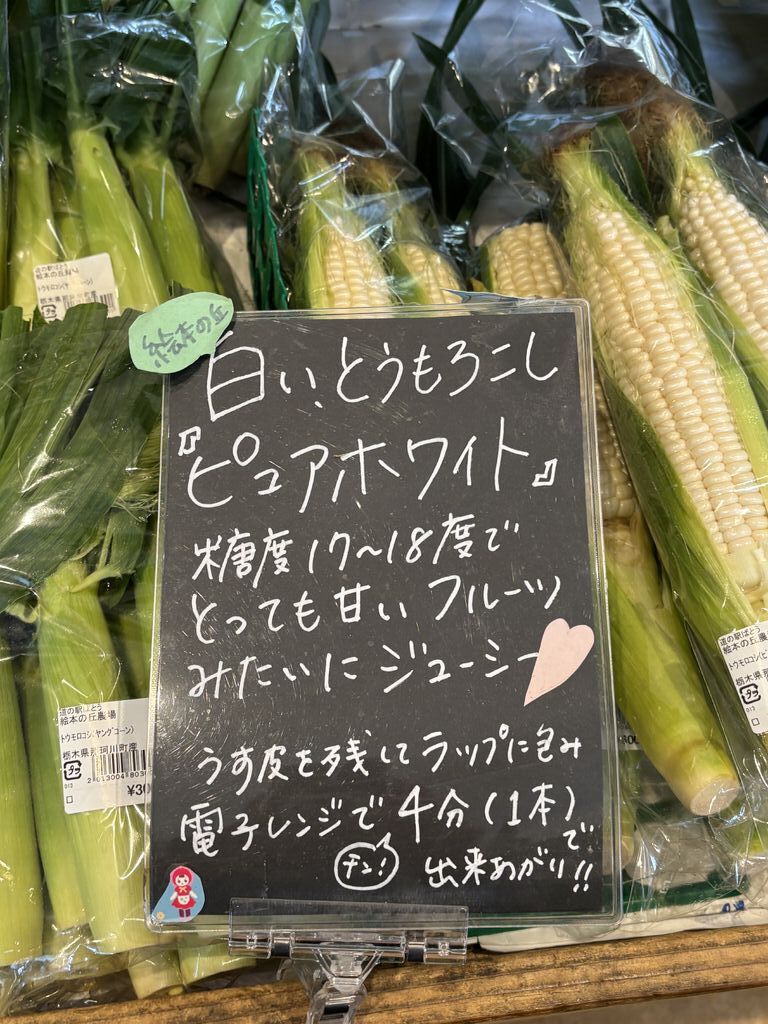 絵本の丘
白い、とうもろこし
『ピュアホワイト』
糖度17〜18度で
とっても甘い フルーツ
みたいに ジューシー
うす皮を残してラップに包み
電子レンジで4分(1本)で
チン!
出来あがり!!
道の駅ばとう
絵本の丘農場
トウモロコシ(ヤングコーン)
栃木県那珂川町産
道の駅ばとう
絵本の丘農場
トウモロコシ(ヤングコーン)
栃木県那珂川町産
プラ
013
2013004803
¥30
道の駅ばとう
絵本の丘農
トウモロコシ(ピ
栃木県那
プラ
013